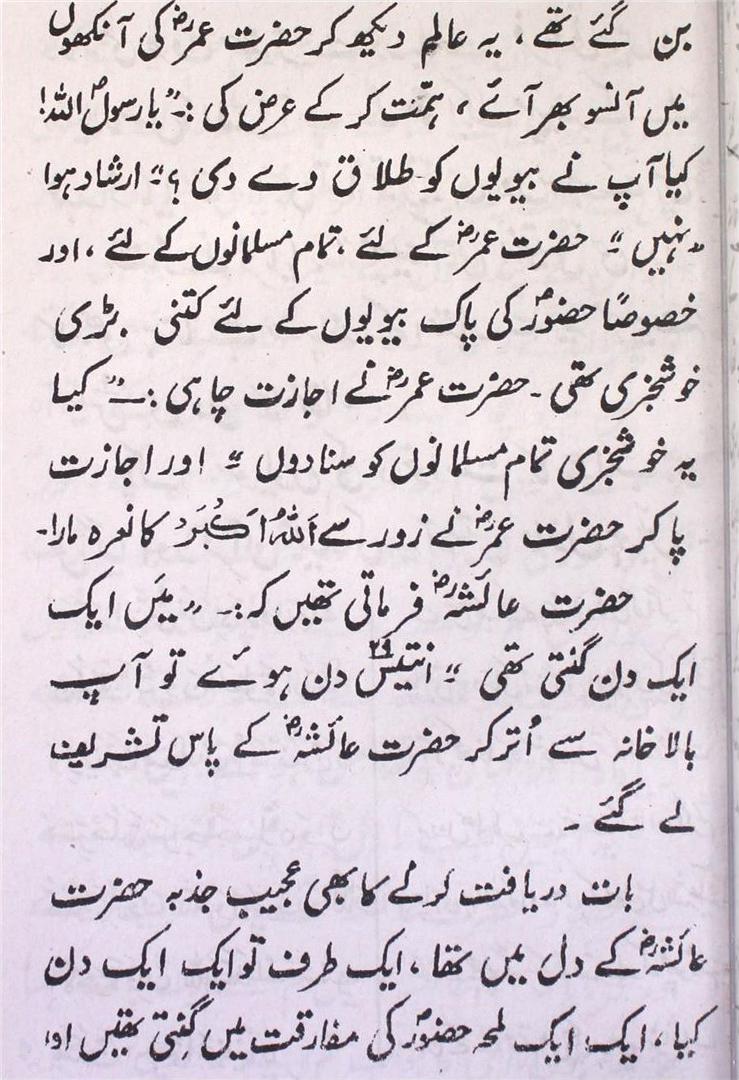 بن گئے تھے، یہ عالم دیکھ کر حضرت عمرؓ کی آنکھوں
میں آنسو بھر آئے، ہمّت کر کے عرض کی :۔ "یا رسولؐ اللہ!
کیا آپ نے بیویوں کو طلاق دے دی؟" ارشاد ہوا
"نہیں" حضرت عمرؓ کے لئے، تمام مسلمانوں کے لئے، اور
خصوصًا حضورؐ کی پاک بیویوں کے لئے کتنی بڑی
خوشخبری تھی۔ حضرت عمرؓ نے اجازت چاہی :۔ "کیا
یہ خوشخبری تمام مسلمانوں کو سنا دوں" اور اجازت
پا کر حضرت عمرؓ نے زور سے اَللہُ اَکْبَرُ کا نعرہ مارا۔
حضرت عائشہؓ فرماتی تھیں کہ :۔ "میَں ایک
ایک دن گنتی تھی" انتیس۲۹ دن ہوئے تو آپ
بالا خانہ سے اُتر کر حضرت عائشہؓ کے پاس تشریف
لے گئے۔
بات دریافت کرنے کا بھی عجیب جذبہ حضرت
عائشہؓ کے دل میں تھا، ایک طرف تو ایک ایک دن
کیا، ایک ایک لمحہ حضورؐ کی مفارقت میں گِنتی تھیں اور